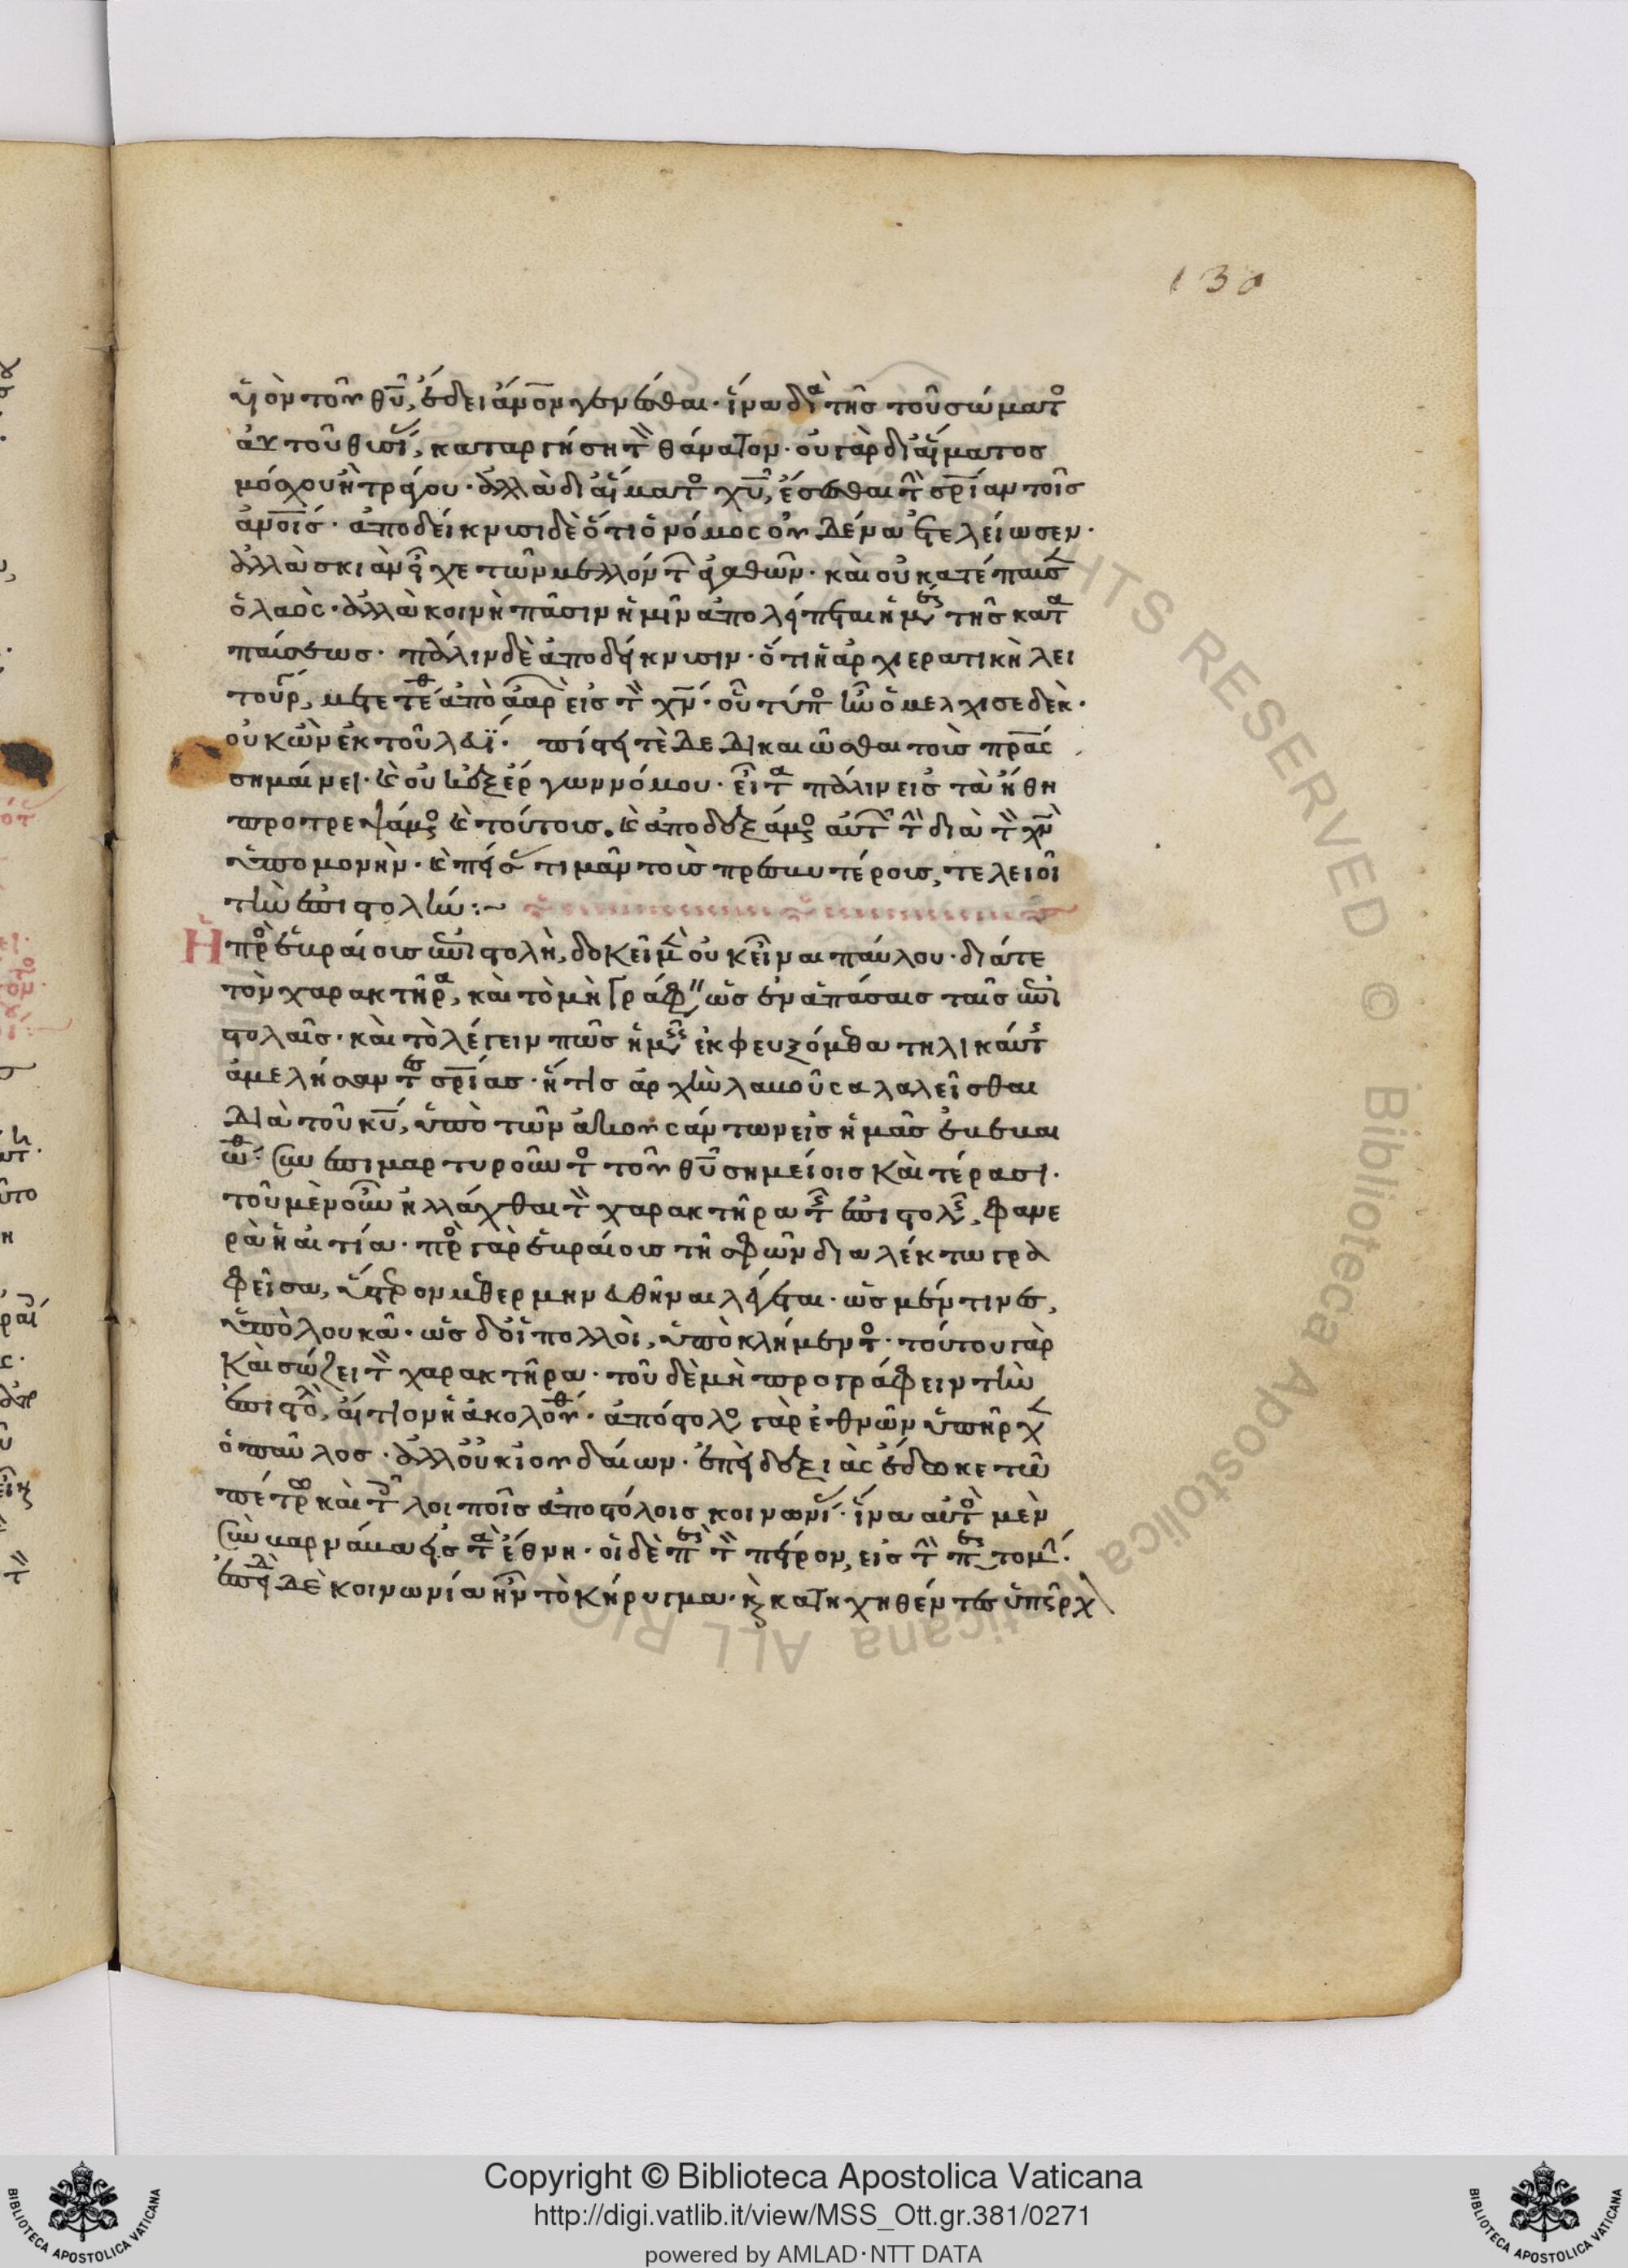 130
υἱὸν τοῦ θῦ, ἔδει ἄνον γενέσθαι· ἵνα διὰ τῆς τοῦ σώματο
αὐτοῦ θυσί, καταργήση τὸν θάνατον· οὐ γὰρ δι αἵματος
μόσχου ἢ τράγου· ἀλλὰ δι αἵματο χῦ, ἔσεσθαι τὴν σρίαν τοῖς
ἀνοις· ἀποδείκνυσι δὲ ὅτι ὁ νόμος οὐδένα ἐτελείωσεν·
ἀλλὰ σκιὰν εἶχε τῶν μελλόντ ἀγαθῶν· καὶ οὐ κατέπαυσ
ὁ λαὸς· ἀλλὰ κοινὴ πᾶσιν ἡμῖν ἀπολείπεται ἡμέρ τῆς κατα
παύσεως· πάλιν δὲ ἀποδείκνυσιν· ὅτι ἡ ἀρχιερατικὴ λει
τουρ, μετετέθ ἀπὸ ἀαρ εἰς τὸν χν· οὗ τύπο ἦν ὁ μελχισεδὲκ·
οὐκ ὢν ἐκ τοῦ λευΐ· πίστει τὲ δεδικαιῶσθαι τοὺς πρας
σημαίνει· καὶ οὐκ ἐξ ἔργων νόμου· εἶτα πάλιν εἰς τὰ ἤθη
προτρεψάμενο καὶ τούτοις. καὶ ἀποδεξάμενο αὐτ τὴν διὰ τὸν χν
ὑπομονὴν· καὶ πείσ τιμᾶν τοὺς πρεσβυτέρους, τελειοῖ
τὴν ἐπιστολήν:~
Ἡ πρὸ ἑβραίους ἐπιστολὴ, δοκεῖ μὲν οὐκ εἶναι παύλου· διά τε
τὸν χαρακτῆρα, καὶ τὸ μὴ γράφειν ὡς ἐν ἁπάσαις ταῖς ἐπι
στολαῖς· καὶ τὸ λέγειν πῶς ἡμεῖς ἐκφευξόμεθα τηλικαύτης
ἀμελήσαντες σρίας· ἥτις ἀρχὴν λαβοῦσα λαλεῖσθαι
διὰ τοῦ κῦ, ὑπὸ τῶν ἀκουσάντων εἰς ἡμᾶς ἐβεβαι
ώθ· συνεπιμαρτυροῦντο τοῦ θῦ σημείοις καὶ τέρασι·
τοῦ μὲν οὖν ἠλλάχθαι τὸν χαρακτῆρα τῆς ἐπιστολῆς, φανε
ρὰ ἡ αἰτία· πρὸ γὰρ ἑβραίους τῆ σφῶν διαλέκτω γρα
φεῖσα, ὕστερον μεθερμηνευθῆναι λέγεται· ὡς μέν τινες,
ὑπὸ λουκᾶ· ὡς δὲ οἱ πολλοὶ, ὑπὸ κλήμεντο· τούτου γὰρ
καὶ σώζει τὸν χαρακτῆρα· τοῦ δὲ μὴ προγράφειν τὴν
ἐπιστολ, αἴτιον ἡ ἀκόλουθ· ἀπόστολο γὰρ ἐθνῶν ὑπῆρχ
ὁ παῦλος· ἀλλ οὐκ ἰουδαίων· ἐπεὶ δεξιὰς ἔδωκε τῶ
πέτρω καὶ τοῖς λοιποῖς ἀποστόλοις κοινωνί· ἵνα αὐτὸ μὲν
σὺν βαρνάβα εἰς τὰ ἔθνη· οἱ δὲ περὶ τὸν πέτρον, εἰς τὴν περιτομ·
ἐπεὶ δὲ κοινωνία ἦν τὸ κήρυγμα· καὶ κατηχηθέντες ὑπῆρχ
Copyright © Biblioteca Apostolica Vaticana
http://digi.vatlib.it/view/MSS_Ott.gr.381/0271
powered by AMLAD·NTT DATA